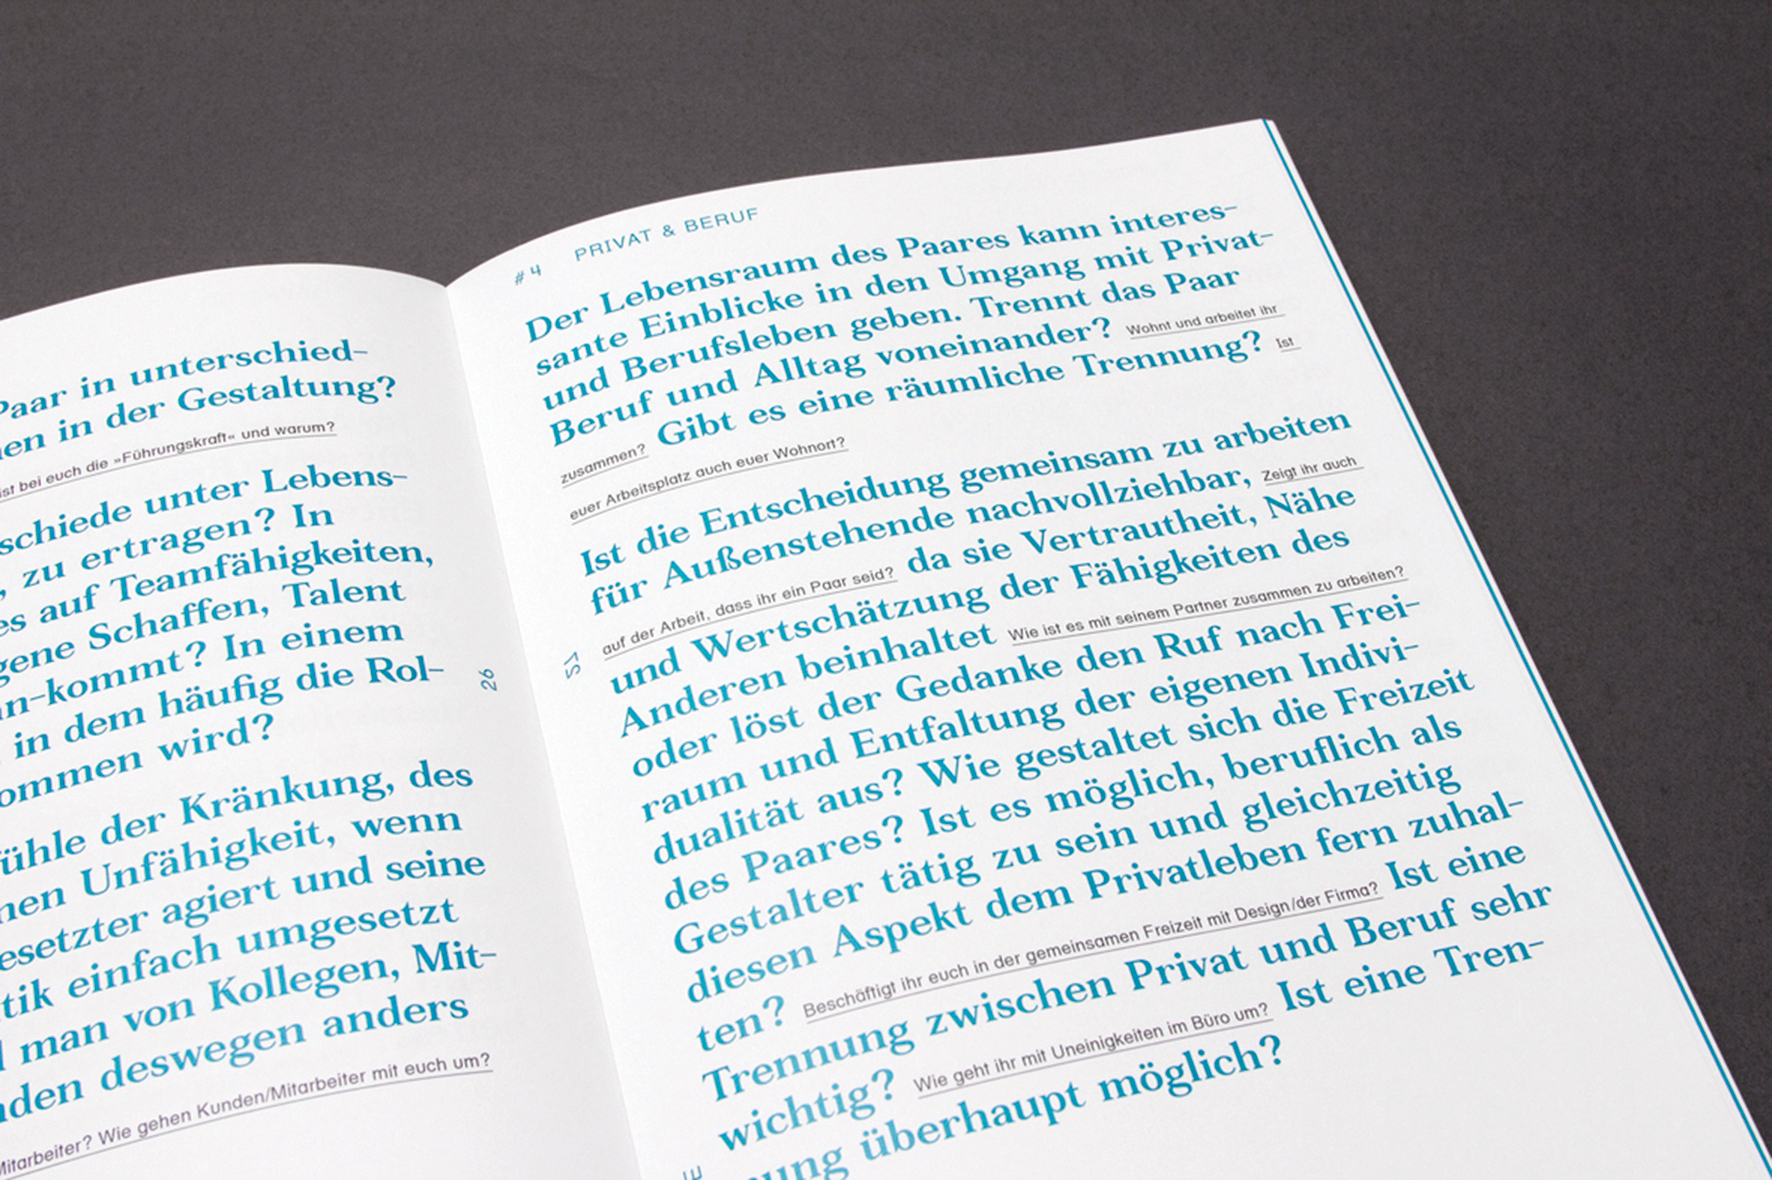 Paar in unterschied-
in der Gestaltung?
ist bei euch die »Führungskraft« und warum?
schiede unter Lebens-
, zu ertragen? In
es auf Teamfähigkeiten,
gene Schaffen, Talent
an-kommt? In einem
, in dem häufig die Rol-
ommen wird?
ühle der Kränkung, des
nen Unfähigkeit, wenn
esetzter agiert und seine
tik einfach umgesetzt
man von Kollegen, Mit-
nden deswegen anders
Mitarbeiter? Wie gehen Kunden/Mitarbeiter mit euch um?
26
#4 PRIVAT & BERUF
Der Lebensraum des Paares kann interes-
sante Einblicke in den Umgang mit Privat-
und Berufsleben geben. Trennt das Paar
Beruf und Alltag voneinander? Wohnt und arbeitet ihr
zusammen? Gibt es eine räumliche Trennung? Ist
euer Arbeitsplatz auch euer Wohnort?
Ist die Entscheidung gemeinsam zu arbeiten
für Außenstehende nachvollziehbar, Zeigt ihr auch
auf der Arbeit, dass ihr ein Paar seid? da sie Vertrautheit, Nähe
und Wertschätzung der Fähigkeiten des
Anderen beinhaltet Wie ist es mit seinem Partner zusammen zu arbeiten?
oder löst der Gedanke den Ruf nach Frei-
raum und Entfaltung der eigenen Indivi-
dualität aus? Wie gestaltet sich die Freizeit
des Paares? Ist es möglich, beruflich als
Gestalter tätig zu sein und gleichzeitig
diesen Aspekt dem Privatleben fern zuhal-
ten? Beschäftigt ihr euch in der gemeinsamen Freizeit mit Design/der Firma? Ist eine
Trennung zwischen Privat und Beruf sehr
wichtig? Wie geht ihr mit Uneinigkeiten im Büro um? Ist eine Tren-
nung überhaupt möglich?